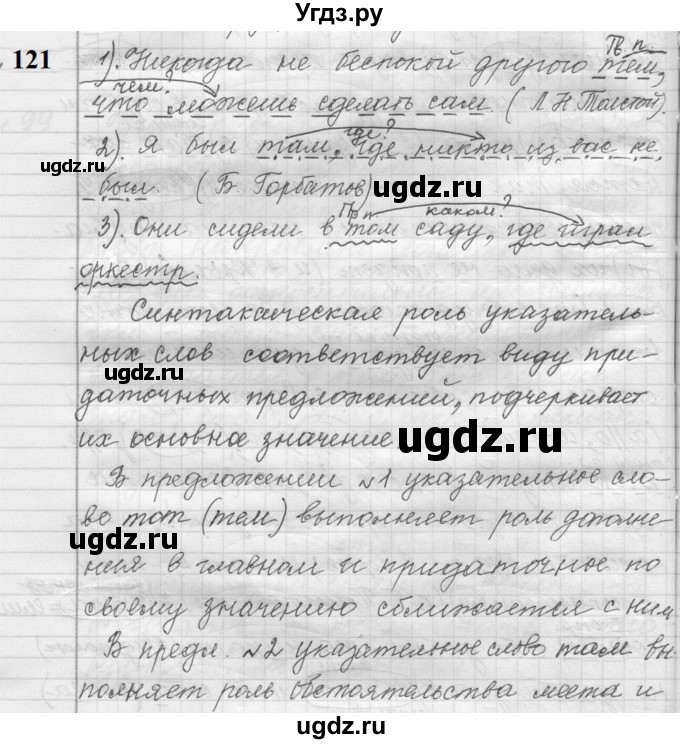 Угдз.ру
121
Пв. п
1). Никогда не беспокой другого тем,
чем?
что можешь сделать сам. (Л Н Толстой).
где?
2). Я был там, где никто из вас не
был. (Б. Горбатов)
ugdz.ru
ugdz.ru
Пр п каком?
3). Они сидели в том саду, где играл
оркестр.
Синтаксическая роль указатель-
ных слов соответствует виду при-
ugdz.ru
даточных предложений, подчеркивает
их основное значение
ugdz.ru
В предложении №1 указательное сло-
во тот (тем) выполняет роль дополне-
ugdz.ru
ния в главном и придаточное по
своему значению сближается с ним
В предл. №2 указательное слово там вы
полняет роль обстоятельства места и
ugdz.ru
ugdz.ru